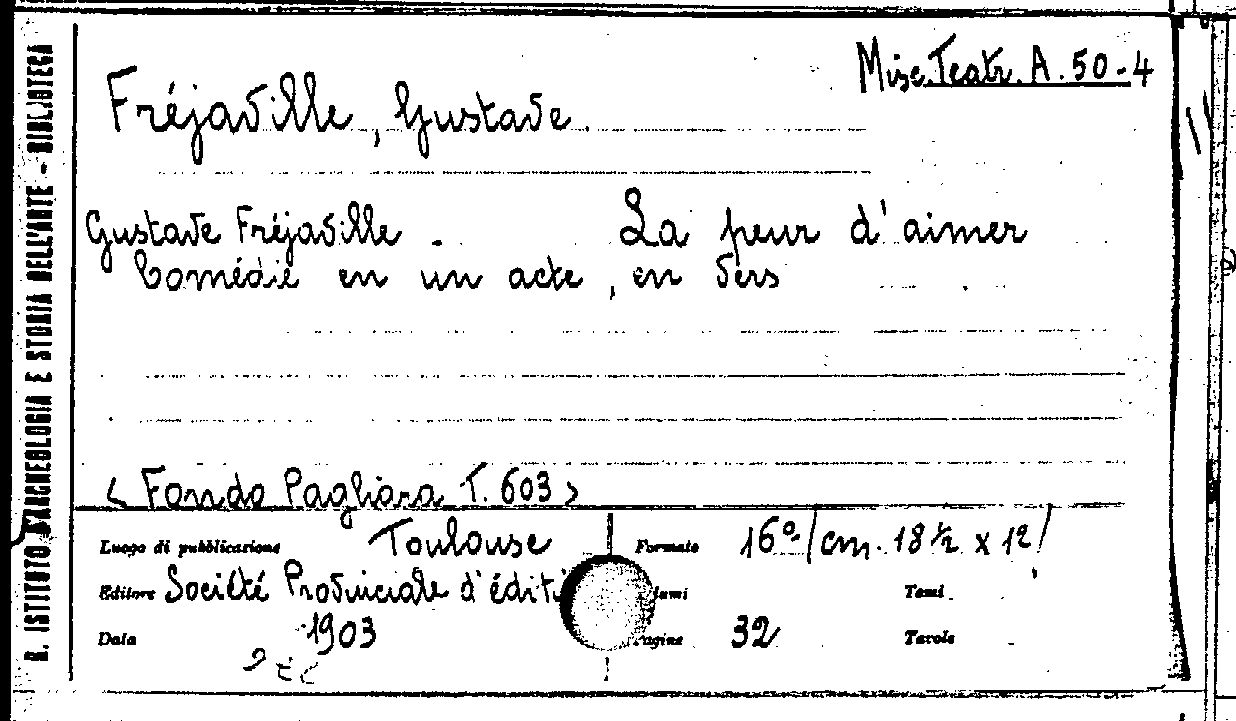 R. ISTITUTO D'ARCHEOLOGIA E STORIA DELL'ARTE - BIBLIOTECA
Misc. Teatr. A. 50-4
Fréjaville, Gustave
Gustave Fréjaville. La peur d'aimer
Comédie en un acte, en vers
< Fondo Pagliara T. 603 >
Luogo di pubblicazione Toulouse Formato 16º/cm. 18½ x 12/
Editore Société Provinciale d'éditi Tomi
Data 1903 32 Tavole